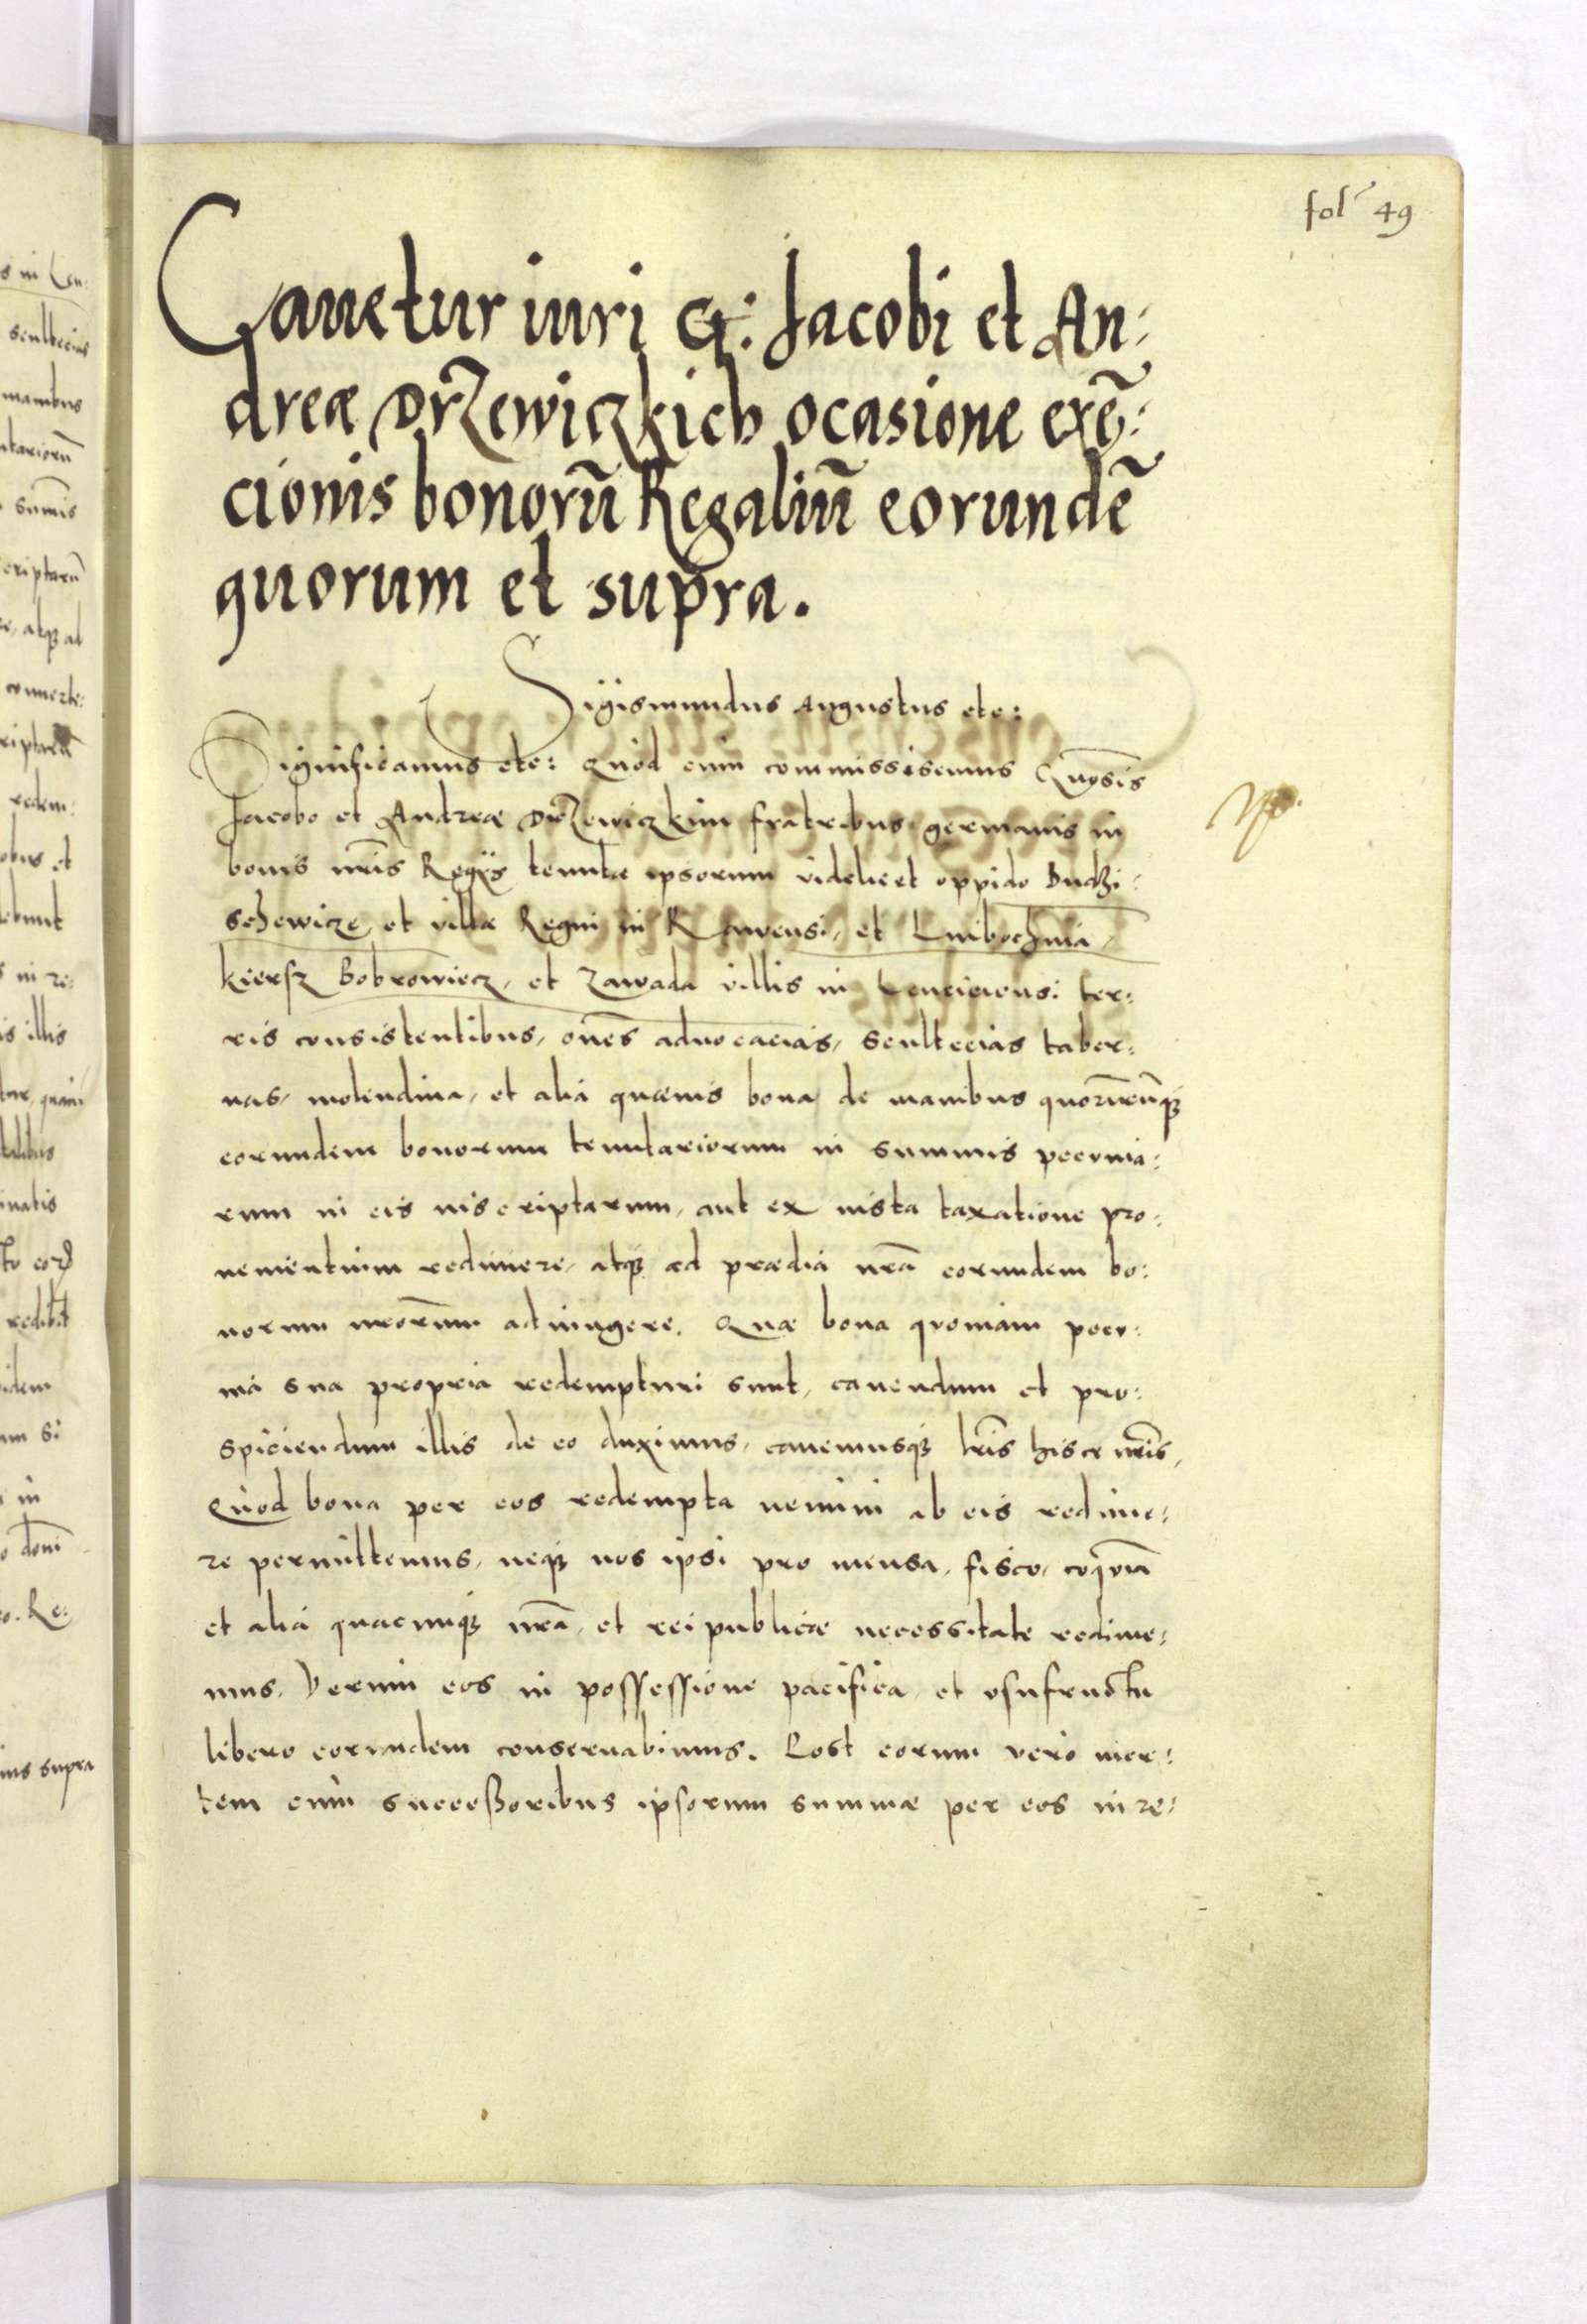 fol˜ 49
Cauetur iuri G: Jacobi et An:
dreæ Drzewiczkich ocasione exẽ:
cionis bonorũ Regaliũ eorundẽ
quorum et supra.
Sigismundus Augustus etc:
Significamus etc: Quod cum commississemus Gñosis
Jacobo et Andreæ Drzewiczkim fratribus germanis in
bonis nr̃is Regijs tenutæ ipsorum videlicet oppido Budzi:
schewicze et villæ Regni in Rawensi, et Lubochnia,
kiersz Bobrowiecz, et Zawada villis in Lenciciensi ter:
ris consistentibus, oñes aduocacias, scultecias taber:
nas, molendina, et alia quæuis bona de manibus quorumcunqȝ
eorundem bonorum tenutariorum in summis pecunia:
rum in eis inscriptarum, aut ex iusta taxatione pro:
uenientium redimere, atqȝ ad prædia nrã eorundem bo:
norum nrorũm adiungere. Quæ bona quoniam pecu:
nia sua propria redempturi sunt, cauendum et pro:
spiciendum illis de eo duximus, cauemusqȝ lr̃is hisce nr̃is,
Quod bona per eos redempta nemini ab eis redime:
re permittemus, neqȝ nos ipsi pro mensa, fisco, coquina
et alia quacunqȝ nrã, et reipublicæ necessitate redime:
mus. Verum eos in possessione pacifica et vsufructu
libero eorundem conseruabimus. Post eorum vero mor:
tem cum successoribus ipsorum summæ per eos in re: